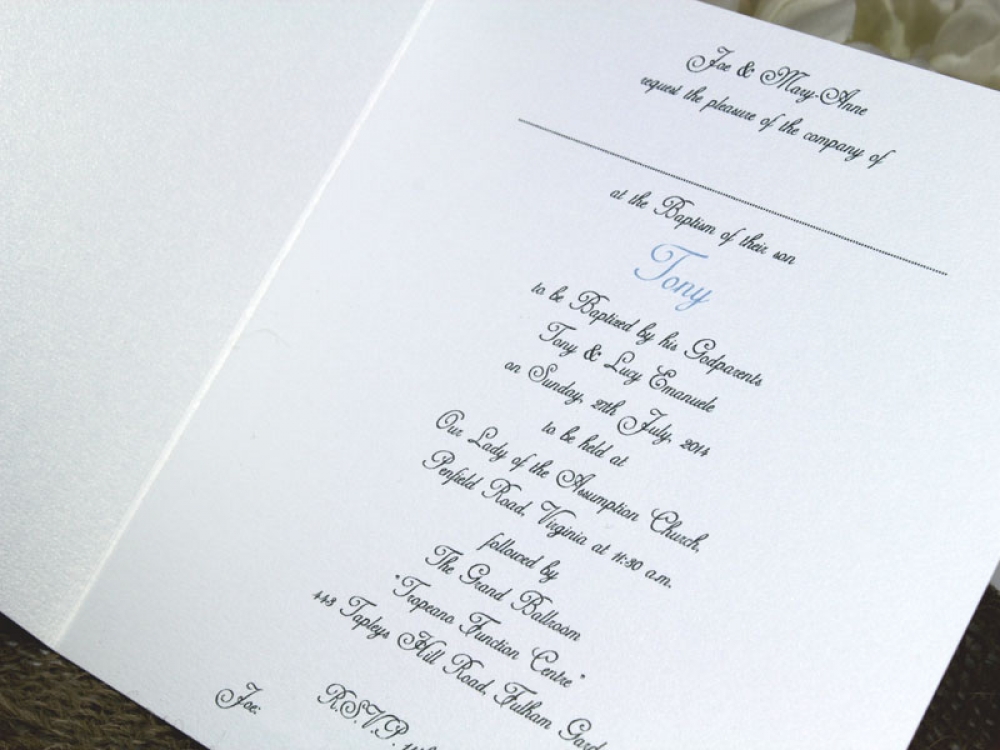 Joe & Mary-Anne
request the pleasure of the company of
at the Baptism of their son
Tony
to be Baptized by his Godparents
Tony & Lucy Emanuele
on Sunday, 27th July, 2014
to be held at
Our Lady of the Assumption Church,
Penfield Road, Virginia at 11:30 a.m.
followed by
The Grand Ballroom
"Tropeano Function Centre"
443 Tapleys Hill Road, Fulham Gard
R.S.V.P.
Joe: